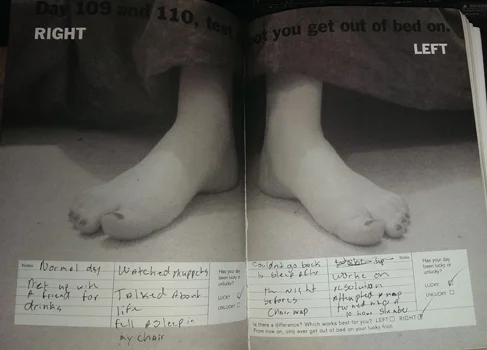 Day 109 and 110, test foot you get out of bed on.
RIGHT
LEFT
Notes Normal day
Met up with
a friend for
drinks
Watched muppets
Talked About
life
fell asleep in
my chair
Has your day
been lucky or
unlucky?
LUCKY
UNLUCKY
Couldn't go back
to sleep after
the night
before's
Chair nap
Notes
Work on
resolution
Attempted a nap
turned into a
10 hour slumber
Has your day
been lucky or
unlucky?
LUCKY
UNLUCKY
Is there a difference? Which works best for you? LEFT RIGHT
From now on, only ever get out of bed on your lucky foot.